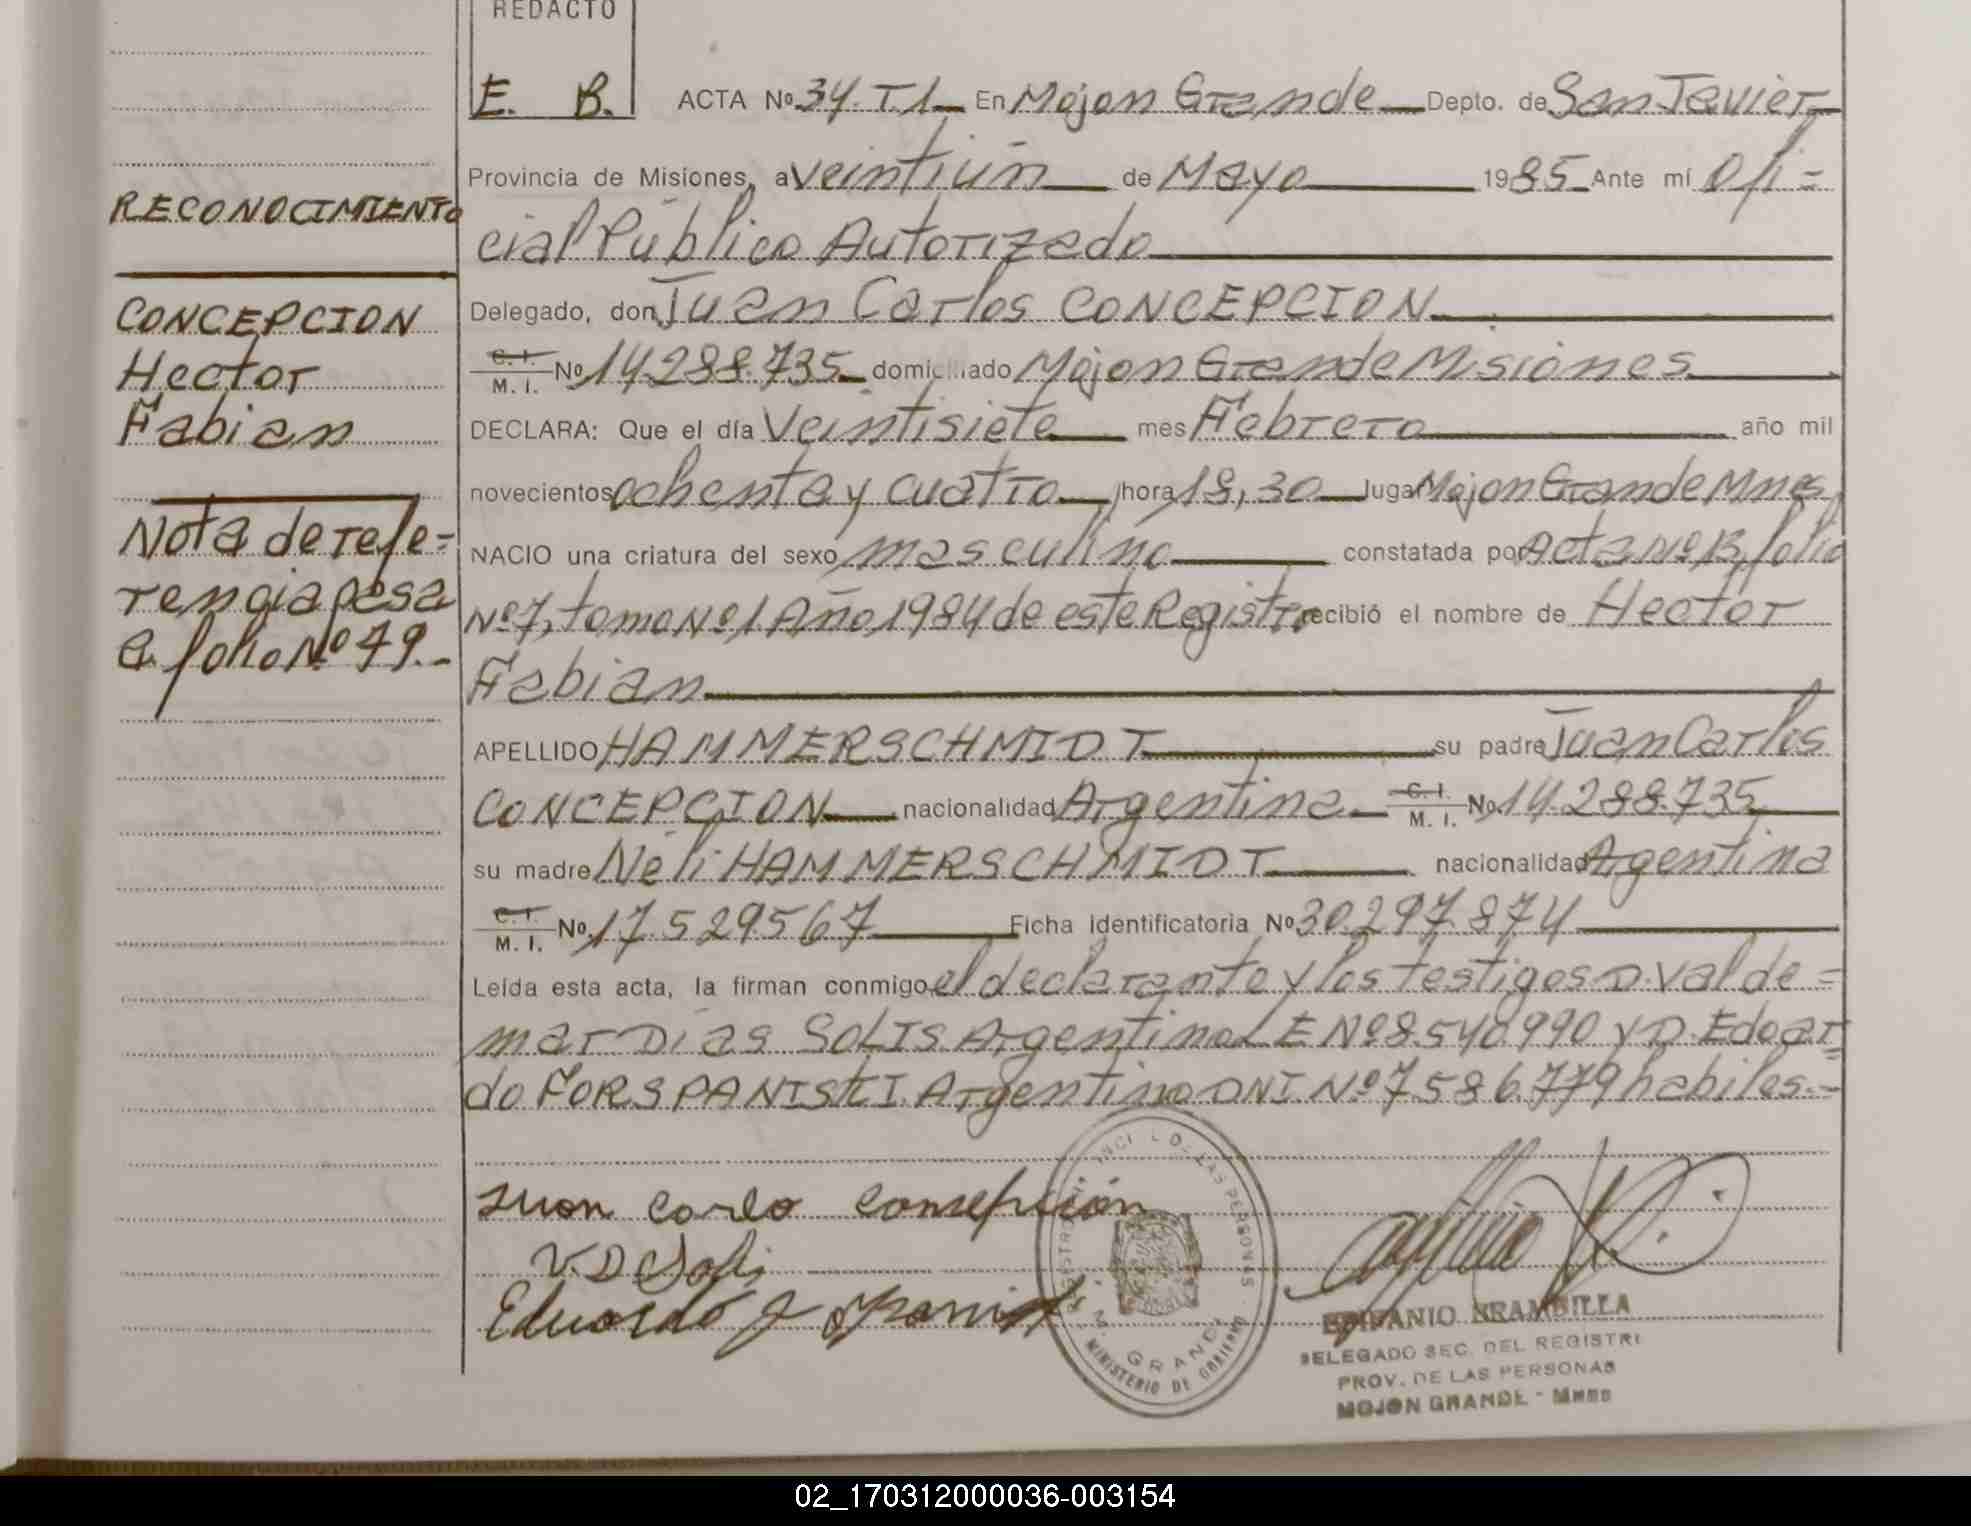 REDACTO
E. B.
ACTA Nº 34. T1 En Mojon Grande Depto. de San Javier
Provincia de Misiones, a veintiún de Mayo 1985 Ante mí Ofi=
cial Público Autorizado
Delegado, don Juan Carlos CONCEPCION
C. I. M. I. Nº 14.288.735 domiciliado Mojon Grande Misiones
DECLARA: Que el día Veintisiete mes Febrero año mil
novecientos ochenta y cuatro hora 18,30 lugar Mojon Grande Mnes
NACIO una criatura del sexo masculino constatada por Acta Nº 13, folio
Nº 7, tomo Nº 1 Año 1984 de este Registro recibió el nombre de Hector
Fabian
APELLIDO HAMMERSCHMIDT su padre Juan Carlos
CONCEPCION nacionalidad Argentina C. I. M. I. Nº 14.288.735
su madre Neli HAMMERSCHMIDT nacionalidad Argentina
C. I. M. I. Nº 17.529567 Ficha Identificatoria Nº 30.297.874
Leída esta acta, la firman conmigo, el declarante y los testigos D. Valde=
mar Dias SOLIS Argentino L E Nº 8.540.990 y D. Edoar=
do FORSPANISKI Argentino DNI. Nº 7.586.779 habiles.=
RECONOCIMIENTO
CONCEPCION
Hector
Fabian
Nota de refe=
rencia pasa
a folio Nº 49.-
Juan Carlo Consepción
V. D Soli
Eduardo
MINISTERIO DE GOBIERNO
M. GRANDE
EPIFANIO BRAMBILLA
DELEGADO SEC. DEL REGISTRO
PROV. DE LAS PERSONAS
MOJON GRANDE - Mnes
02_170312000036-003154